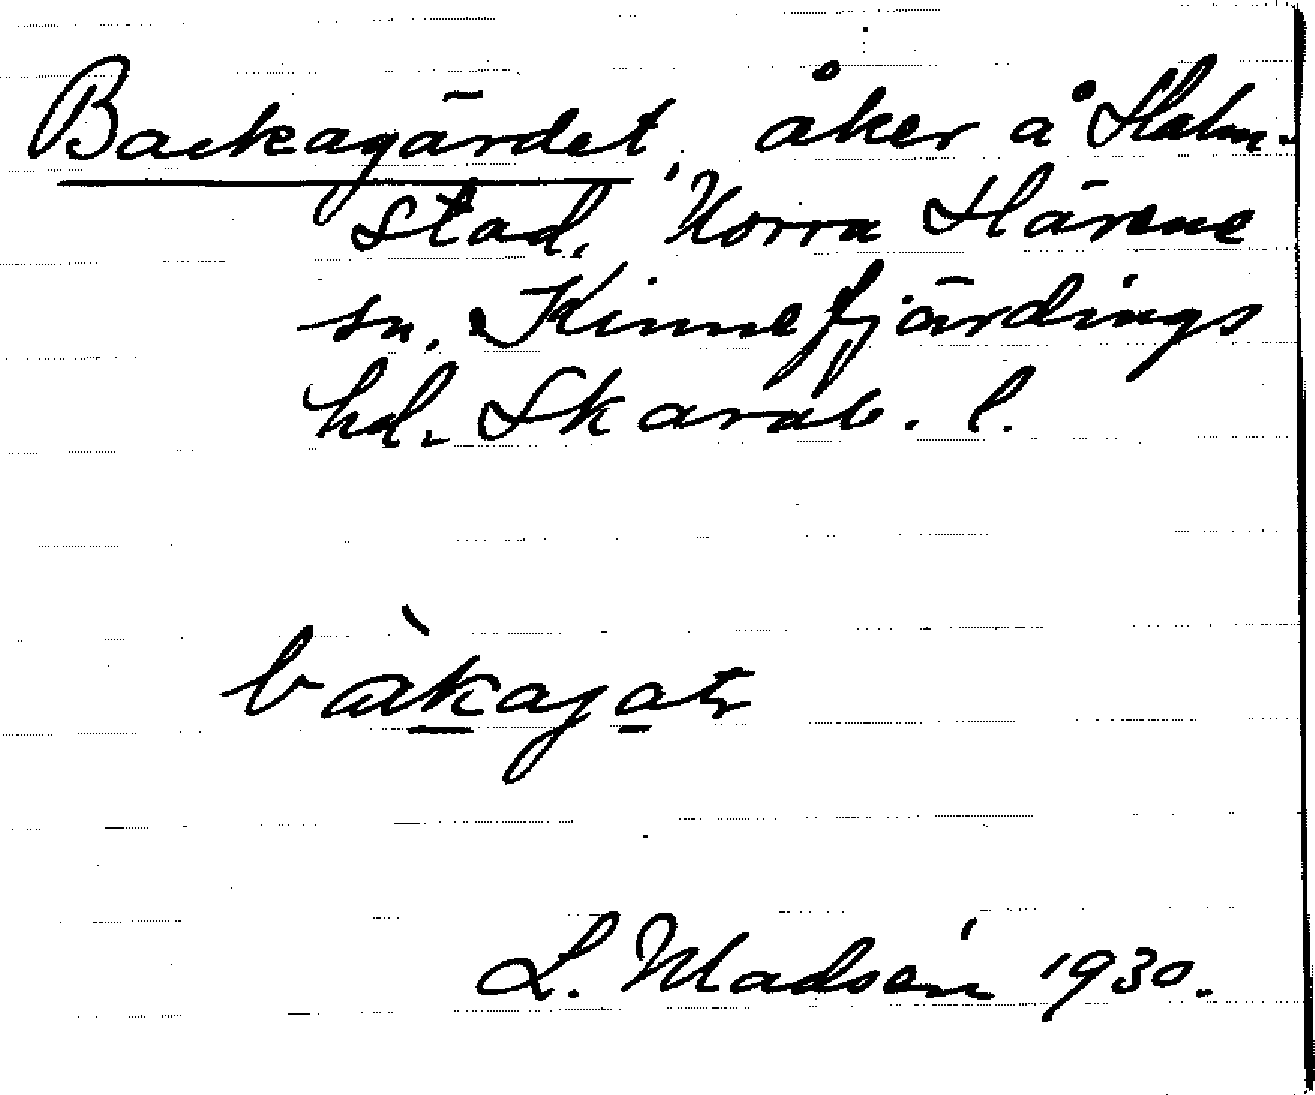 Backagärdet, åker å Halm-
stad, Norra Härene
sn. Kinnefjärdings
hd. Skarab. l.
L. Madsén 1930.